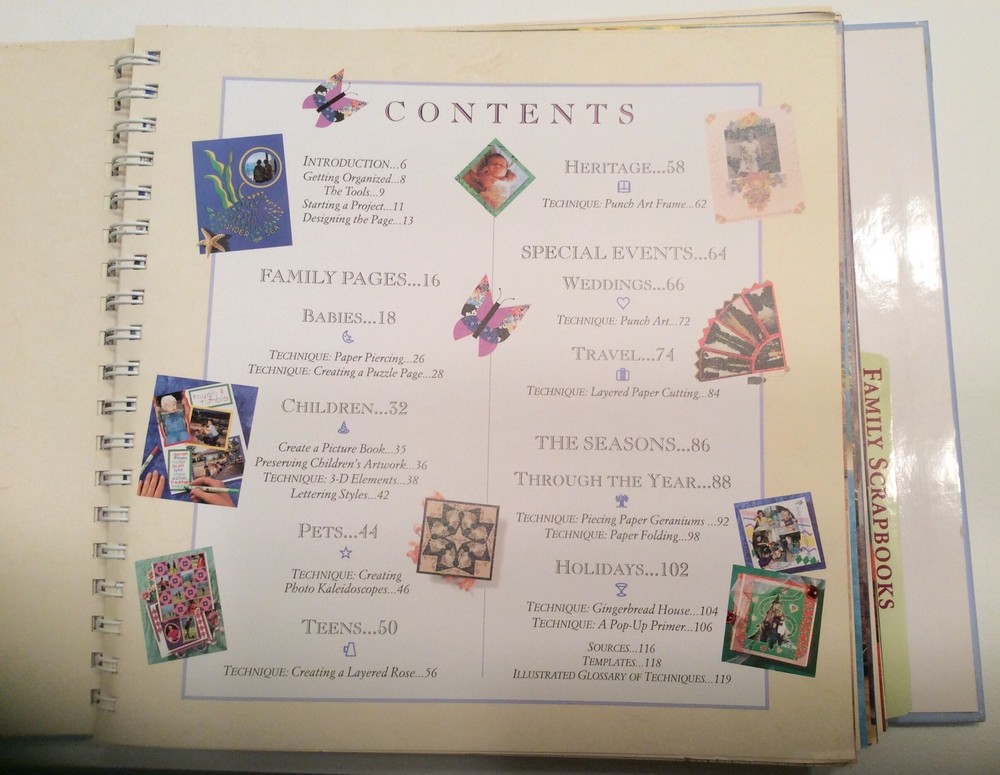 CONTENTS
INTRODUCTION...6
Getting Organized...8
The Tools...9
Starting a Project...11
Designing the Page...13
FAMILY PAGES...16
BABIES...18
TECHNIQUE: Paper Piercing...26
TECHNIQUE: Creating a Puzzle Page...28
CHILDREN...32
Create a Picture Book...35
Preserving Children's Artwork...36
TECHNIQUE: 3-D Elements...38
Lettering Styles...42
PETS...44
TECHNIQUE: Creating
Photo Kaleidoscopes...46
TEENS...50
TECHNIQUE: Creating a Layered Rose...56
HERITAGE...58
TECHNIQUE: Punch Art Frame...62
SPECIAL EVENTS...64
WEDDINGS...66
TECHNIQUE: Punch Art...72
TRAVEL...74
TECHNIQUE: Layered Paper Cutting...84
THE SEASONS...86
THROUGH THE YEAR...88
TECHNIQUE: Piecing Paper Geraniums ...92
TECHNIQUE: Paper Folding...98
HOLIDAYS...102
TECHNIQUE: Gingerbread House...104
TECHNIQUE: A Pop-Up Primer...106
SOURCES...116
TEMPLATES...118
ILLUSTRATED GLOSSARY OF TECHNIQUES...119
UNDER
SEA
FAMILY SCRAPBOOKS